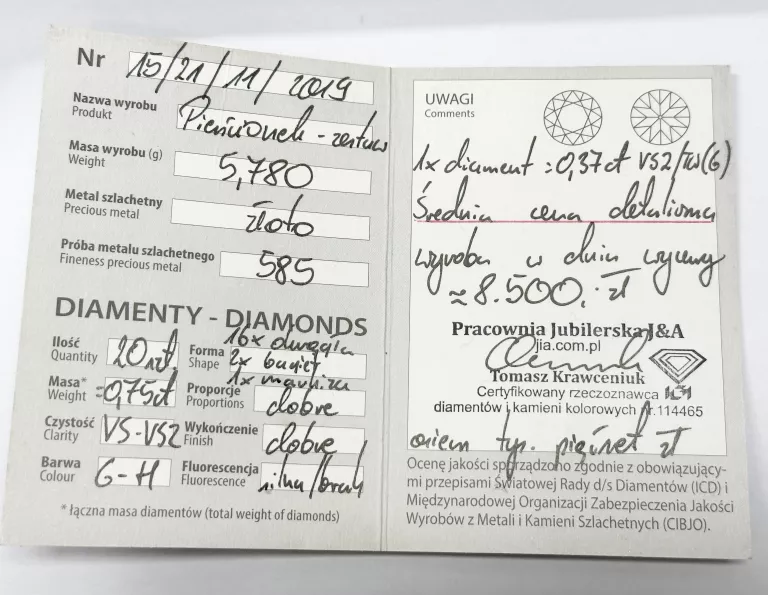 Nr 15/21/11/2019
Nazwa wyrobu Pierścionek - zestaw
Produkt
Masa wyrobu (g) 5,780
Weight
Metal szlachetny złoto
Precious metal
Próba metalu szlachetnego 585
Fineness precious metal
DIAMENTY - DIAMONDS
Ilość 20 szt
Quantity
Forma 16x okrągła
Shape 2x bagiet
1x markiza
Masa* ≈0,75ct
Weight
Proporcje dobre
Proportions
Czystość VS-VS2
Clarity
Wykończenie dobre
Finish
Barwa G-H
Colour
Fluorescencja silna/brak
Fluorescence
* łączna masa diamentów (total weight of diamonds)
UWAGI
Comments
1x diament ≈0,37ct VS2/TW(G)
Średnia cena detaliczna
wyrobu w dniu wyceny
≈ 8.500,- zł
Pracownia Jubilerska J&A
jia.com.pl
Tomasz Krawceniuk
Certyfikowany rzeczoznawca
diamentów i kamieni kolorowych nr.114465
osiem tys. pięćset zł
Ocenę jakości sporządzono zgodnie z obowiązujący-
mi przepisami Światowej Rady d/s Diamentów (ICD) i
Międzynarodowej Organizacji Zabezpieczenia Jakości
Wyrobów z Metali i Kamieni Szlachetnych (CIBJO).